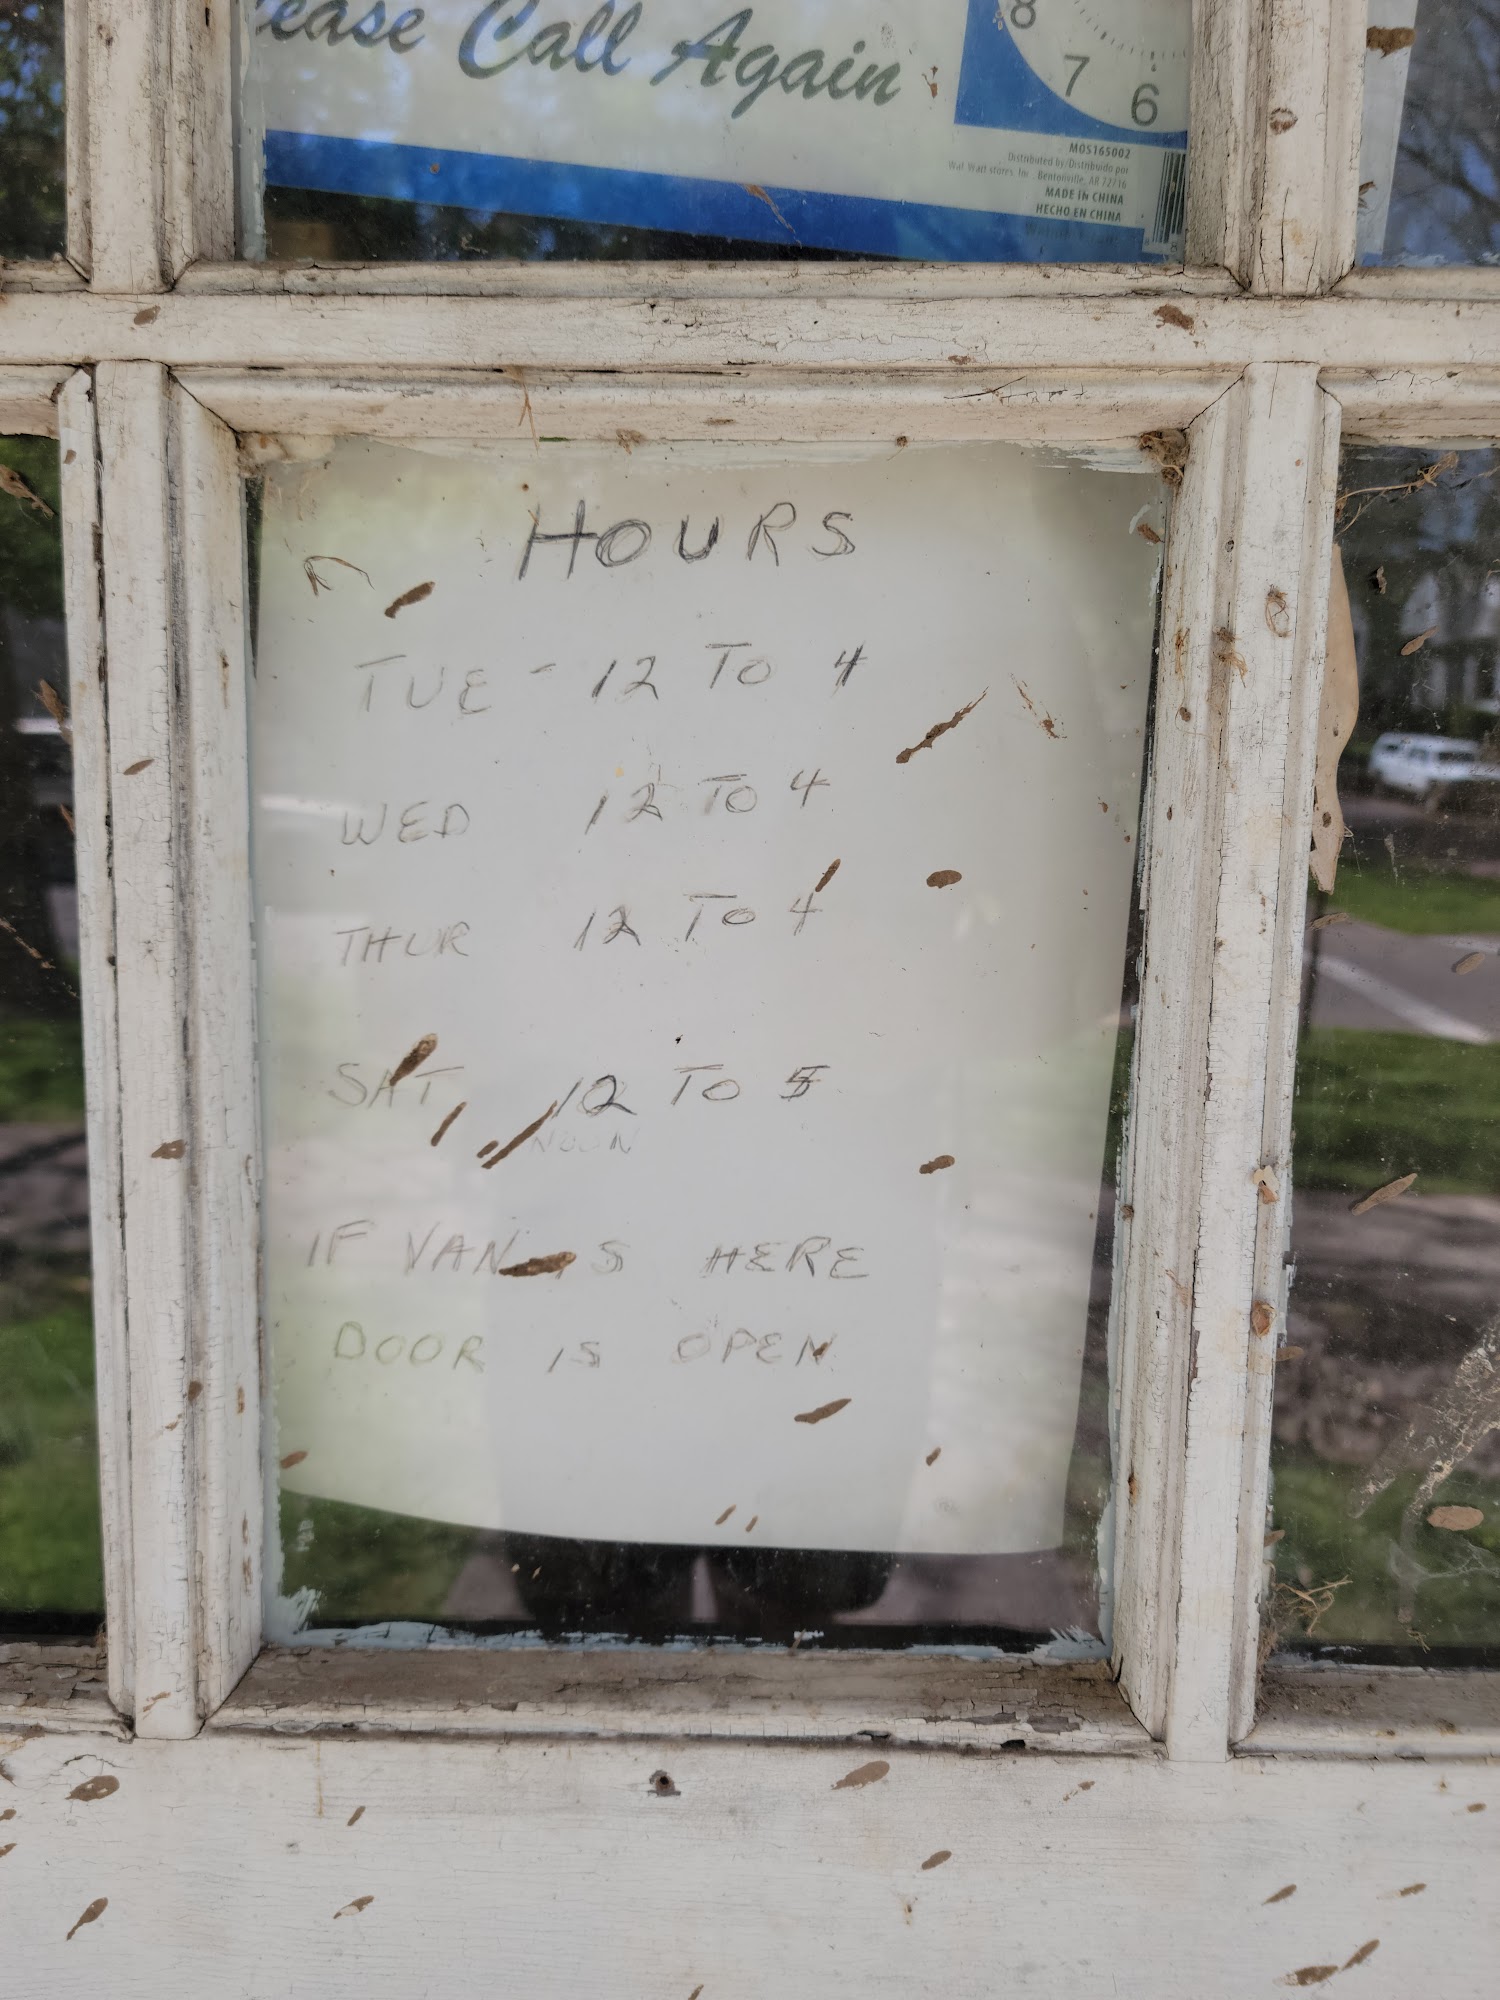 Call Again
8
7
6
MOS165002
Distributed by/Distribuido por
Wal-Mart stores, Inc. Bentonville, AR 72716
MADE IN CHINA
HECHO EN CHINA
HOURS
TUE - 12 TO 4
WED 12 TO 4
THUR 12 TO 4
SAT 12 TO 5
NOON
IF VAN IS HERE
DOOR IS OPEN